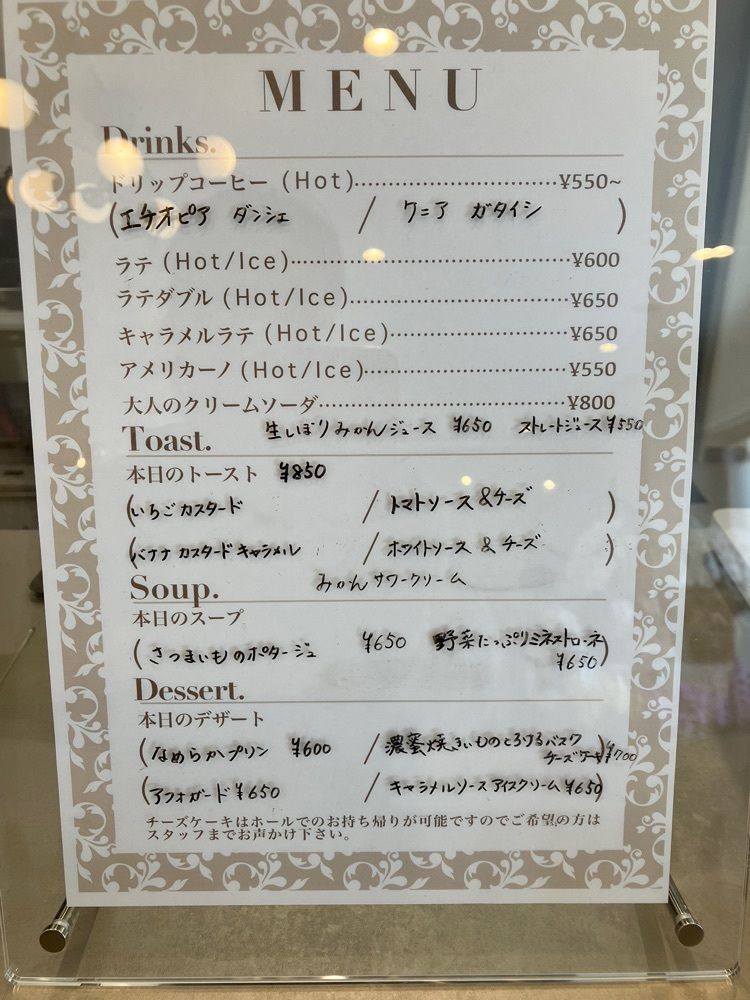 MENU
Drinks.
ドリップコーヒー (Hot)‥‥‥‥‥‥‥‥‥‥‥¥550~
(エチオピア ダンシェ / ケニア ガタイシ )
ラテ (Hot/Ice)‥‥‥‥‥‥‥‥‥‥‥‥‥‥¥600
ラテダブル (Hot/Ice)‥‥‥‥‥‥‥‥‥‥‥¥650
キャラメルラテ (Hot/Ice)‥‥‥‥‥‥‥‥‥¥650
アメリカーノ (Hot/Ice)‥‥‥‥‥‥‥‥‥‥¥550
大人のクリームソーダ‥‥‥‥‥‥‥‥‥‥‥‥¥800
生しぼりみかんジュース ¥650 ストレートジュース ¥550
Toast.
本日のトースト ¥850
(いちごカスタード / トマトソース &チーズ )
(バナナ カスタード キャラメル / ホワイトソース & チーズ )
みかん サワークリーム
Soup.
本日のスープ
(さつまいものポタージュ ¥650 野菜たっぷりミネストローネ ¥650)
Dessert.
本日のデザート
(なめらかプリン ¥600 / 濃蜜焼きいものとろけるバスクチーズケーキ ¥700)
(アフォガード ¥650 / キャラメルソースアイスクリーム ¥650)
チーズケーキはホールでのお持ち帰りが可能ですのでご希望の方は
スタッフまでお声かけ下さい。